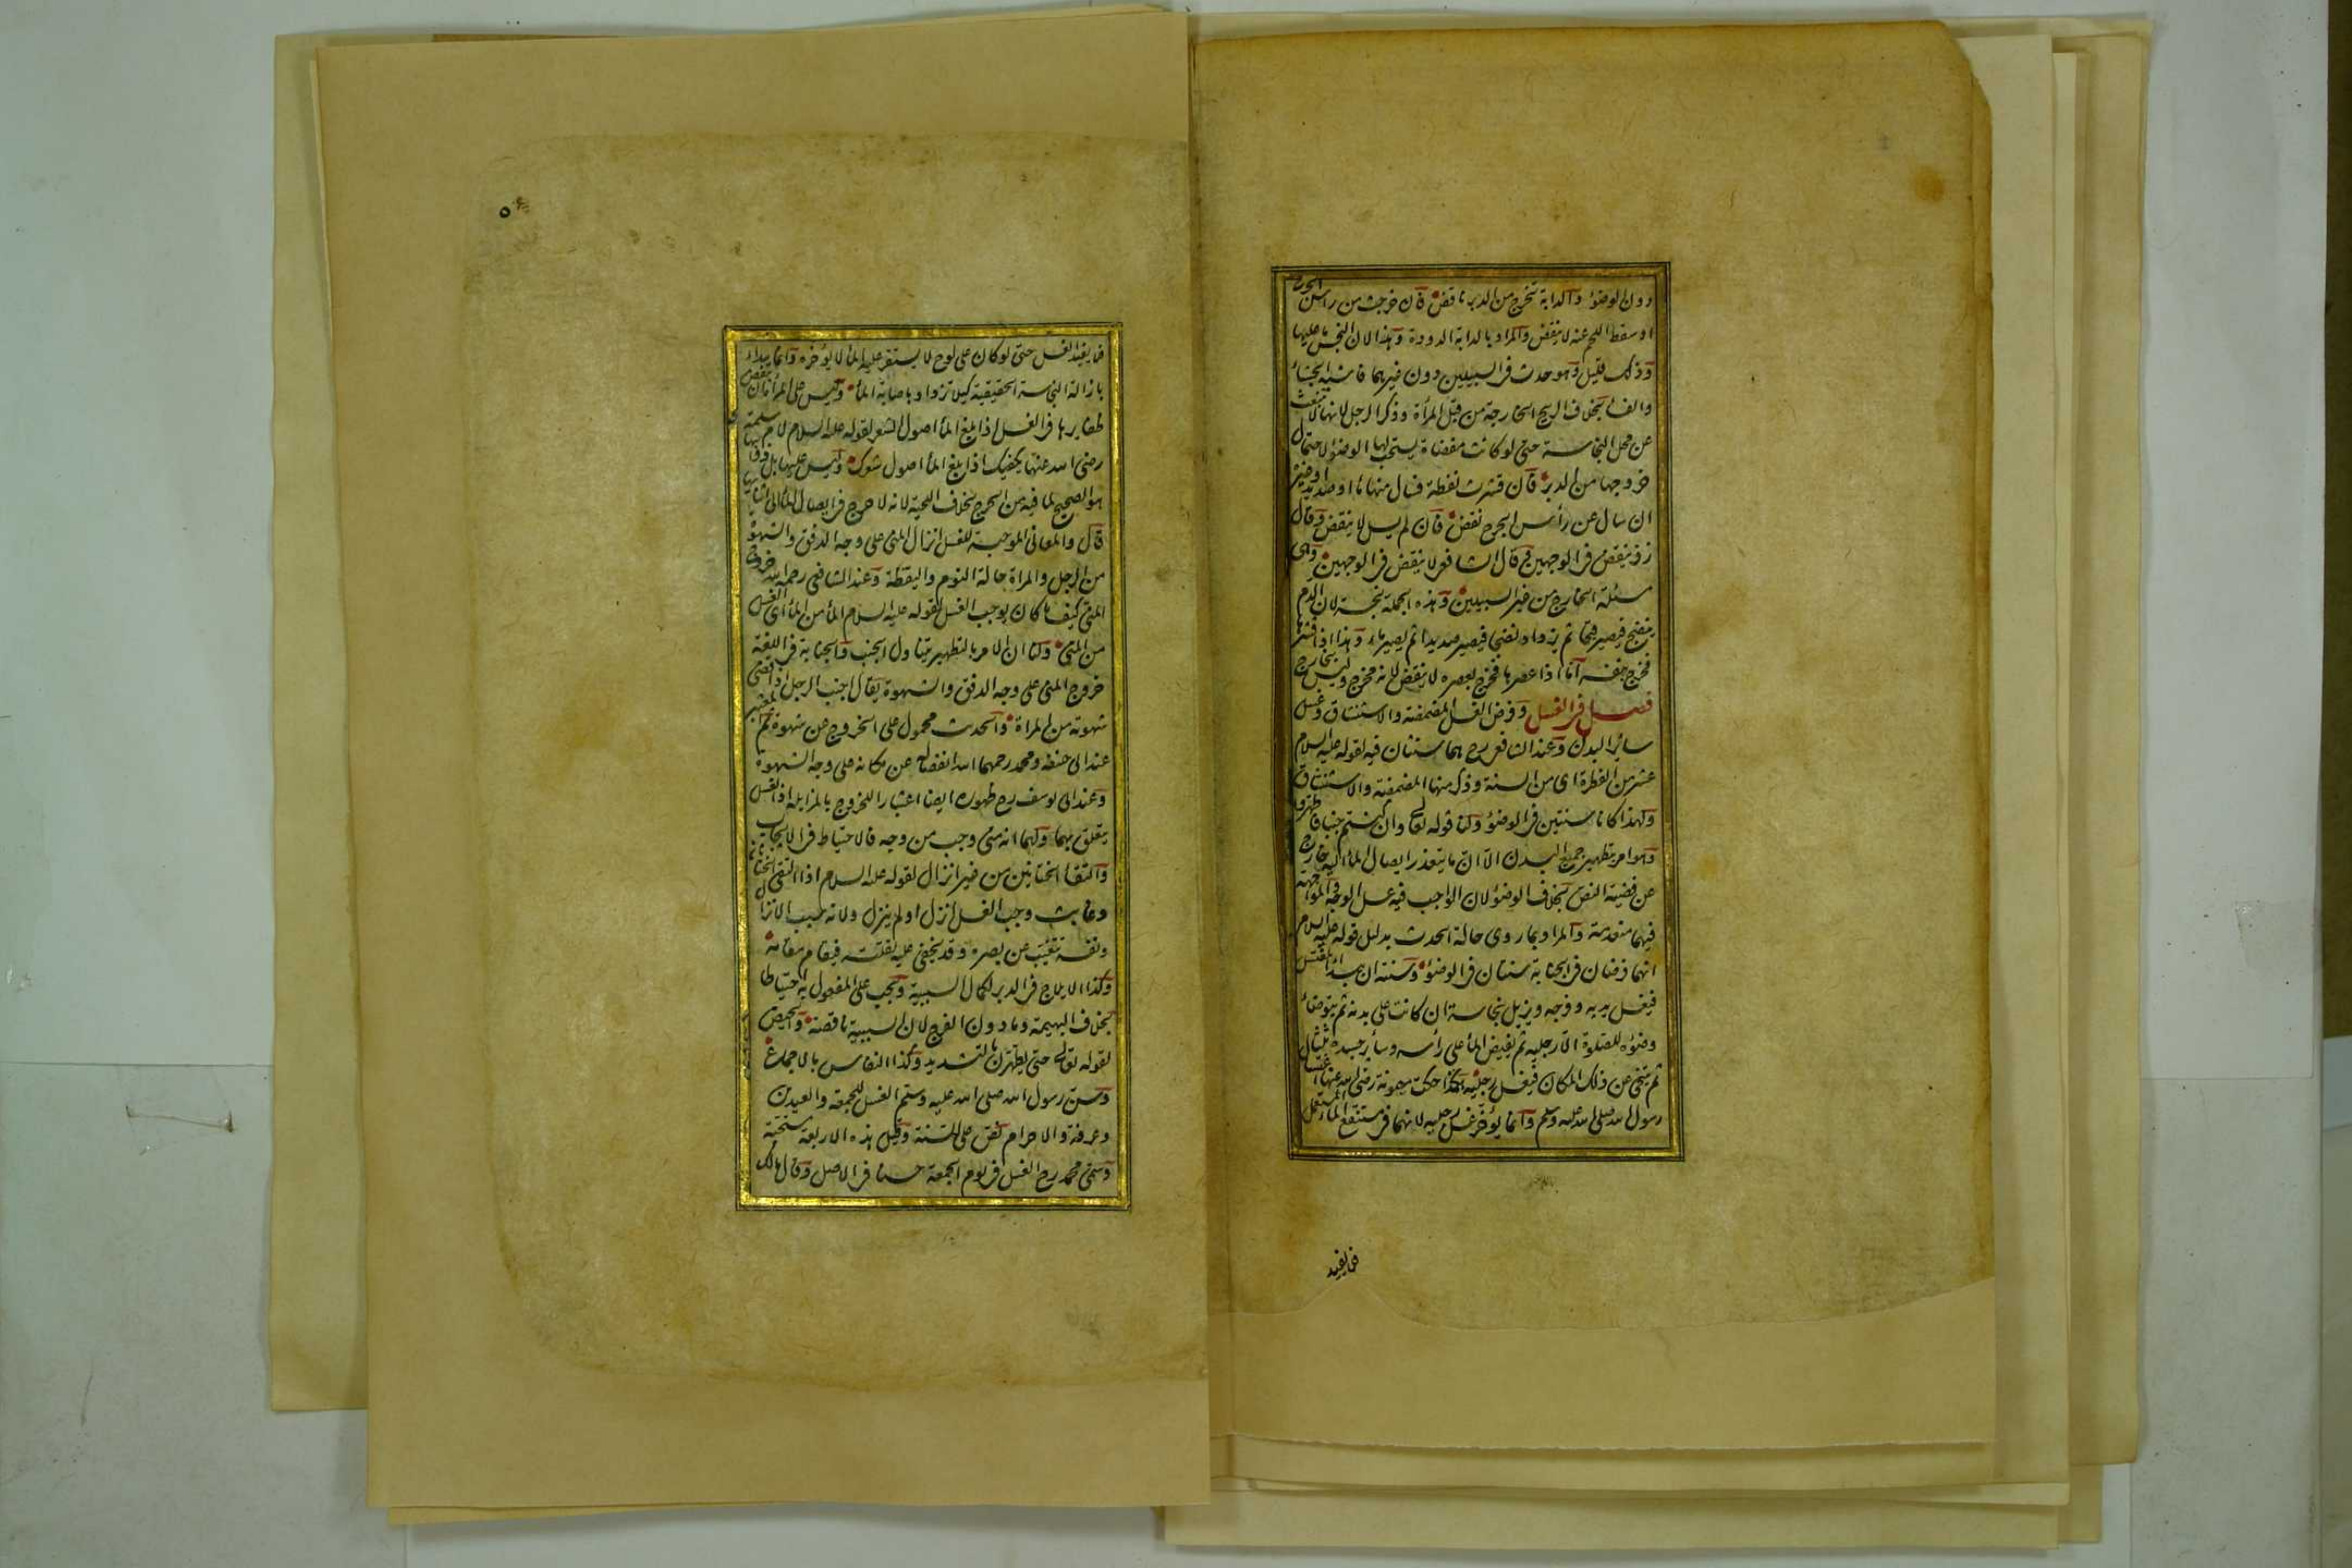 دون الوضوء والدابة تخرج من الدبر ناقض فان خرجت من رأس الجرح
او سقط اللحم عنه لا ينقض والمراد بالدابة الدودة وهذا لان النجس ما عليها
وذلك قليل وهو حدث فى السبيلين دون غيرهما فاشبه الجشاء
والفساء بخلاف الريح الخارجة من قبل المرأة وذكر الرجل لانها لا تنبعث
عن محل النجاسة حتى لو كانت مفضاة يستحب لها الوضوء لاحتمال
خروجها من الدبر فان قشرت نفطة فسال منها ماء او صديد او غيره
ان سال عن رأس الجرح نقض فان لم يسل لا ينقض وقال
زفر ينقض فى الوجهين وقال الشافعى لا ينقض فى الوجهين وهى
مسئلة الخارج من غير السبيلين وهذه الجملة نجسة لان الدم
ينضج فيصير قيحا ثم يزداد نضجا فيصير صديدا ثم يصير ماء وهذا اذا قشرها
فخرج بنفسه اما اذا عصرها فخرج بعصره لا ينقض لانه مخرج وليس بخارج
فصل فى الغسل وفرض الغسل المضمضة والاستنشاق وغسل
سائر البدن وعند الشافعى رح هما سنتان فيه لقوله عليه السلام
عشر من الفطرة اى من السنة وذكر منها المضمضة والاستنشاق
ولهذا كانا سنتين فى الوضوء ولنا قوله تعالى وان كنتم جنبا فاطهروا
وهو امر بتطهير جميع البدن الا ان ما يتعذر ايصال الماء اليه خارج
عن قضية النص بخلاف الوضوء لان الواجب فيه غسل الوجه والمواجهة
فيهما منعدمة والمراد بما روى حالة الحدث بدليل قوله عليه السلام
انهما فرضان فى الجنابة سنتان فى الوضوء وسنته ان يبدأ المغتسل
فيغسل يديه وفرجه ويزيل نجاسة ان كانت على بدنه ثم يتوضاء
وضوءه للصلوة الا رجليه ثم يفيض الماء على رأسه وسائر جسده ثلثا
ثم يتنحى عن ذلك المكان فيغسل رجليه هكذا حكت ميمونة رضى الله عنها اغتسال
رسول الله صلى الله عليه وسلم وانما يؤخر غسل رجليه لانهما فى مستنقع الماء المستعمل
فلا يفيد
فلا يفيد الغسل حتى لو كان على لوح لا يستقر عليه الماء لا يؤخره وانما يبداء
بازالة النجاسة الحقيقية كيلا تزداد باصابة الماء وليس على المرأة ان تنقض
ظفايرها فى الغسل اذا بلغ الماء اصول الشعر لقوله عليه السلام لام سلمة
رضى الله عنها يكفيك اذا بلغ الماء اصول شعرك وليس عليها بل ذوائبها
هو الصحيح لما فيه من الحرج بخلاف اللحية لانه لا حرج فى ايصال الماء الى اثنائها
قال والمعانى الموجبة للغسل انزال المنى على وجه الدفق والشهوة
من الرجل والمراة حالة النوم واليقظة وعند الشافعى رحمه الله خروج
المنى كيف ما كان يوجب الغسل لقوله عليه السلام الماء من الماء اى الغسل
من المنى ولنا ان الامر بالتطهير يتناول الجنب والجنابة فى اللغة
خروج المنى على وجه الدفق والشهوة يقال اجنب الرجل اذا قضى
شهوته من المراة والحديث محمول على الخروج عن شهوة ثم المعتبر
عند ابى حنيفة ومحمد رحمهما الله انفصاله عن مكانه على وجه الشهوة
وعند ابى يوسف رح ظهوره ايضا اعتبارا للخروج بالمزايلة اذ الغسل
يتعلق بهما ولهما انه متى وجب من وجه فالاحتياط فى الايجاب
والتقاء الختانين من غير انزال لقوله عليه السلام اذا التقى الختانان
وغابت وجب الغسل انزل او لم ينزل ولانه سبب الانزال
ونفسه تغيب عن بصره وقد يخفى عليه لقلته فيقام مقامه
وكذا الايلاج فى الدبر لكمال السببية وتجب على المفعول به احتياطا
بخلاف البهيمة وما دون الفرج لان السببية ناقصة والحيض
لقوله تعالى حتى يطهرن بالتشديد وكذا النفاس بالاجماع
وسن رسول الله صلى الله عليه وسلم الغسل للجمعة والعيدين
وعرفة والاحرام نص على السنة وقيل هذه الاربعة مستحبة
وسمى محمد رح الغسل فى يوم الجمعة حسنا فى الاصل وقال مالك